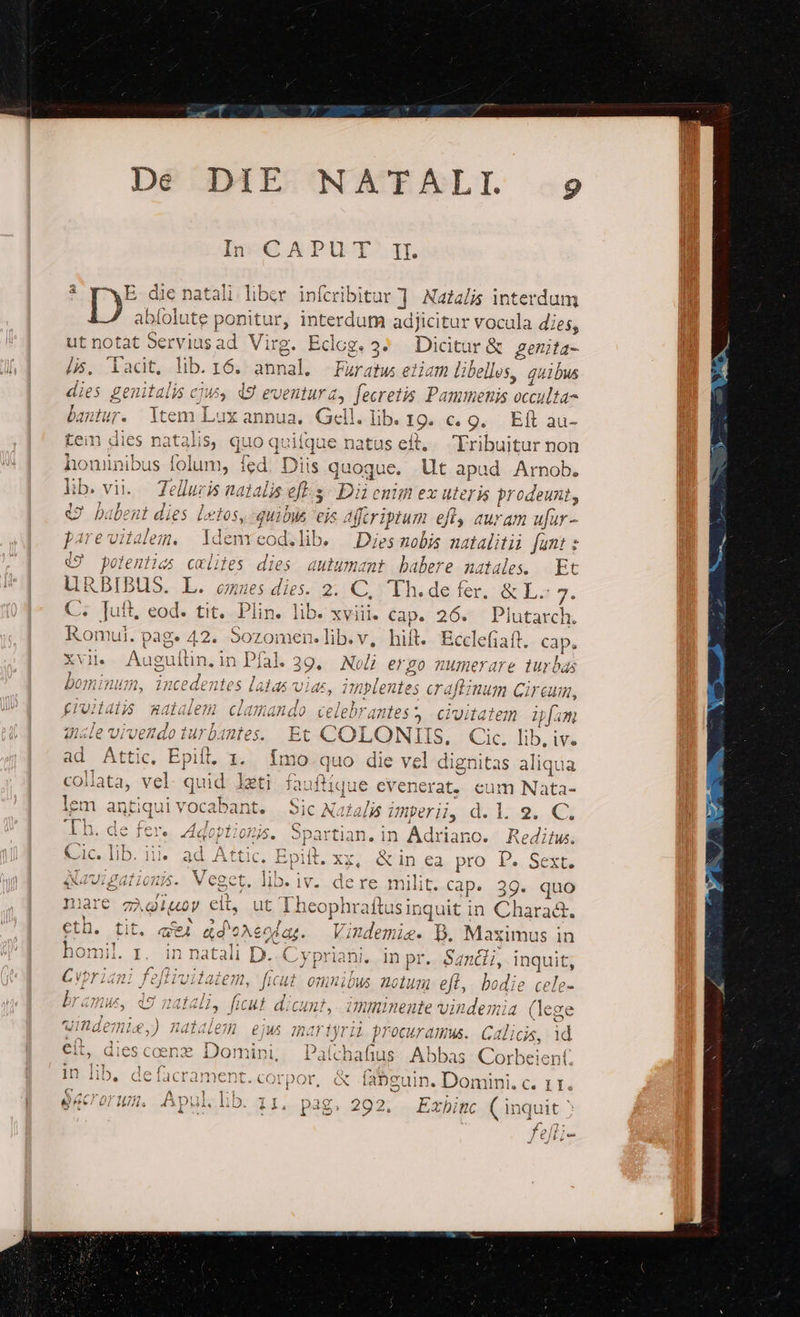 De DIE NATALI. 9
In CAPUT II.
ᵃ DE die natali liber inſcribitur ] Natalis interdum
abſolute ponitur, interdum adjicitur vocula dies,
ut notat Servius ad Virg. Eclog. 3. Dicitur & genita-
lis. Tacit. lib. 16. annal. Furatus etiam libellos, quibus
dies genitalis ejus, & eventura, ſecretis Pammenis occulta-
bantur. Item Lux annua. Gell. lib. 19. c. 9. Eſt au-
tem dies natalis, quo quiſque natus eſt. Tribuitur non
hominibus ſolum, ſed Diis quoque. Ut apud Arnob.
lib. vii. Telluris natalis eſt; Dii enim ex uteris prodeunt,
& habent dies lætos, quibus eis aſſcriptum eſt, auram uſur-
pare vitalem. Idem eod. lib. Dies nobis natalitii ſunt:
& potentias cælites dies autumant habere natales. Et
URBIBUS. L. omnes dies. 2. C. Th. de fer. & L. 7.
C. Juſt. eod. tit. Plin. lib. xviii. cap. 26. Plutarch.
Romul. pag. 42. Sozomen. lib. v. hiſt. Eccleſiaſt. cap.
xvii. Auguſtin. in Pſal. 39. Noli ergo numerare turbas
hominum, incedentes latas vias, implentes craſtinum Circum,
civitatis natalem clamando celebrantes, civitatem ipſam
male vivendo turbantes. Et COLONIIS. Cic. lib. iv.
ad Attic. Epiſt. 1. Imo quo die vel dignitas aliqua
collata, vel quid læti fauſtique evenerat, eum Nata-
lem antiqui vocabant. Sic Natalis imperii, d. l. 2. C.
Th. de fer. Adoptionis. Spartian. in Adriano. Reditus.
Cic. lib. iii. ad Attic. Epiſt. xx. & in ea pro P. Sext.
Navigationis. Veget. lib. iv. de re milit. cap. 39. quo
mare πλώϊμον eſt, ut Theophraſtus inquit in Charact.
eth. tit. περὶ ἀδολεσχίας. Vindemiæ. B. Maximus in
homil. 1. in natali D. Cypriani. in pr. Sancti, inquit,
Cypriani feſtivitatem, ſicut omnibus notum eſt, hodie cele-
bramus, & natali, ſicut dicunt, imminente vindemia (lege
vindemiæ,) natalem ejus martyrii procuramus. Calicis, id
eſt, dies cœnæ Domini, Paſchaſius Abbas Corbeienſ.
in lib. de ſacrament. corpor. & ſanguin. Domini. c. 11.
Sacrorum. Apul. lib. 11. pag. 292. Exhinc (inquit)
feſti-